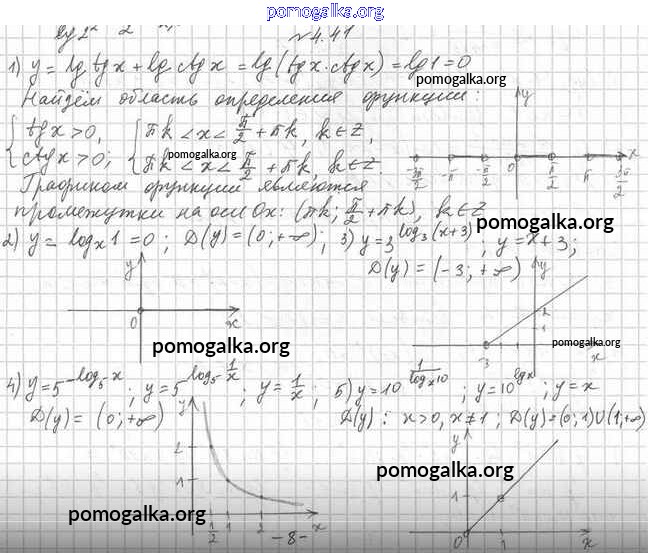 pomogalka.org
№4.41
1) y = lg tgx + lg ctgx = lg(tgx·ctgx) = lg1 = 0
pomogalka.org
Найдём область определения функции:
{ tgx > 0, { πk < x < π/2 + πk, k∈Z,
{ ctgx > 0; { πk < x < π/2 + πk, k∈Z
pomogalka.org
y x
-3π/2 -π -π/2 0 π/2 π 3π/2
Графиком функции являются
промежутки на оси Ox: (πk; π/2 + πk), k∈Z
pomogalka.org
2) y = log_x 1 = 0; D(y) = (0; +∞); 3) y = 3^(log_3(x+3)); y = x + 3;
D(y) = (-3; +∞)
y 0 x
y 2 1 -3 x
pomogalka.org
pomogalka.org
4) y = 5^(-log_5 x); y = 5^(log_5 1/x); y = 1/x; 5) y = 10^(1/log_x 10); y = 10^(lgx); y = x
D(y) = (0; +∞) D(y): x > 0, x ≠ 1; D(y) = (0; 1)∪(1; +∞)
y 2 1 1/2 1 x
y 1 0 1 x
pomogalka.org
pomogalka.org
-8-